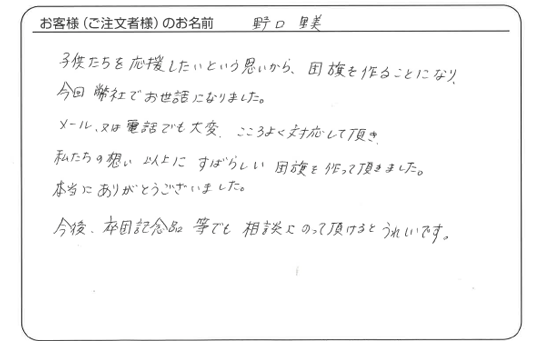 お客様（ご注文者様）のお名前 野口 里美
子供たちを応援したいという思いから、団旗を作ることになり、
今回弊社でお世話になりました。
メール、又は電話でも大変、こころよく対応して頂き
私たちの想い以上に すばらしい 団旗を作って頂きました。
本当にありがとうございました。
今後、卒団記念品 等でも 相談にのって頂けるとうれしいです。